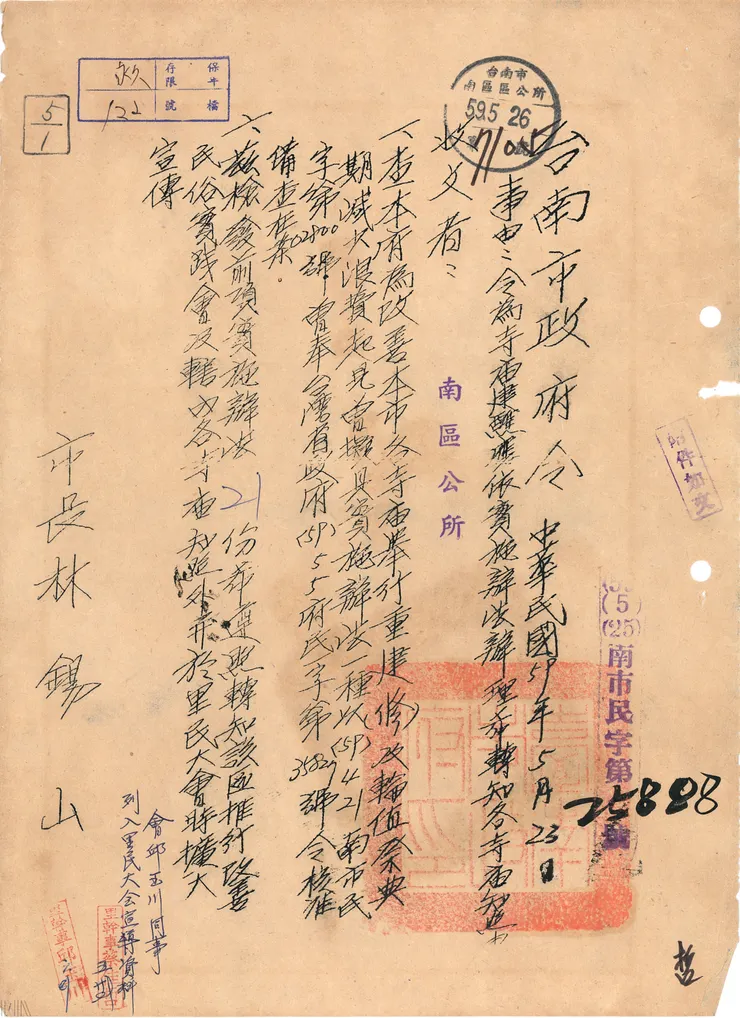 台南市政府令
中華民國59年5月23日
(5)
(25)
南市民字第
25808
號
台南市
南區區公所
59.5 26
事由:令為寺廟建醮應依實施辦法辦理希轉知各寺廟知照
收文者:
南區公所
附件如文
一、查本府為改善本市各寺廟舉行重建(修)及輪值祭典
期減少浪費起見曾擬具實施辦法一種以(59)4 21南市民
字第02800號曾奉台灣省政府(59)5 5府民字第35829號令核准
備查在案
六、茲檢發前項實施辦法21份希遵照轉知該區推行改善
民俗實踐會及轄內各寺廟知照外并於里民大會時擴大
宣傳
市長林錫山
保年
存限
檔
號
永久
122
5/1
會邱玉川同事
列入里民大会宣傳資料
里幹事
哲